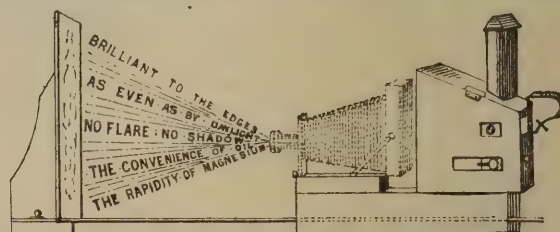 BRILLIANT TO THE EDGES
AS EVEN AS BY DAYLIGHT
NO FLARE: NO SHADOWS
THE CONVENIENCE OF OIL
THE RAPIDITY OF MAGNESIUM